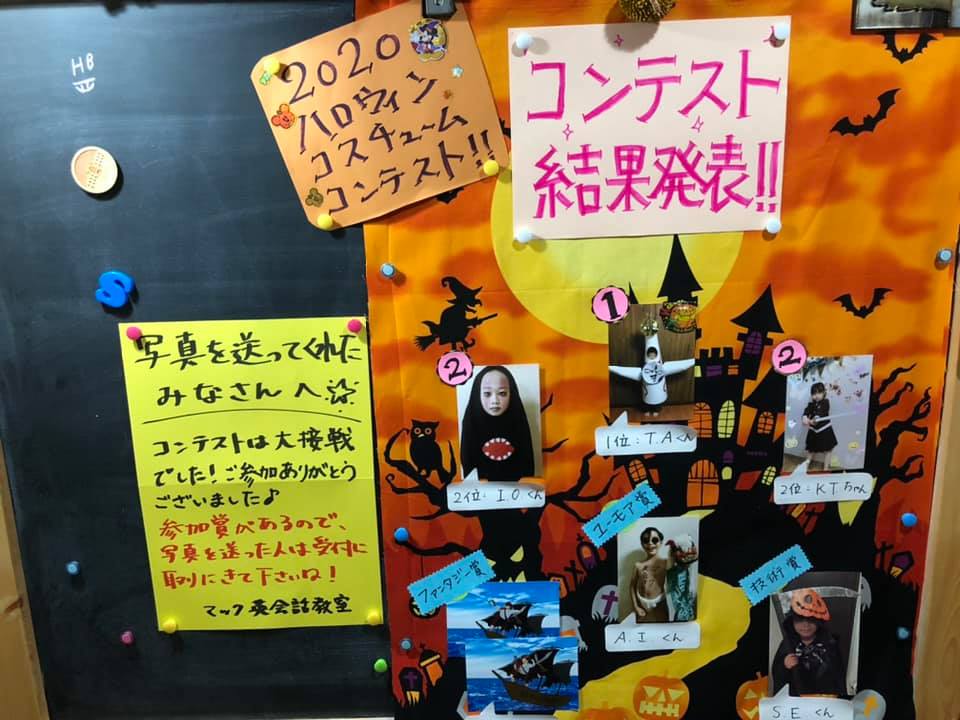 HB
2020
ハロウィン
コスチューム
コンテスト!!
コンテスト
結果発表!!
写真を送ってくれた
みなさんへ
コンテストは大接戦
でした!ご参加ありがとう
ございました♪
参加賞があるので、
写真を送った人は受付に
取りにきて下さいね!
マック英会話教室
1
1位:T.Aくん
2
2位:I.Oくん
2
2位:K.T.ちゃん
ユーモア賞
A.I.くん
ファンタジー賞
技術賞
S.Eくん